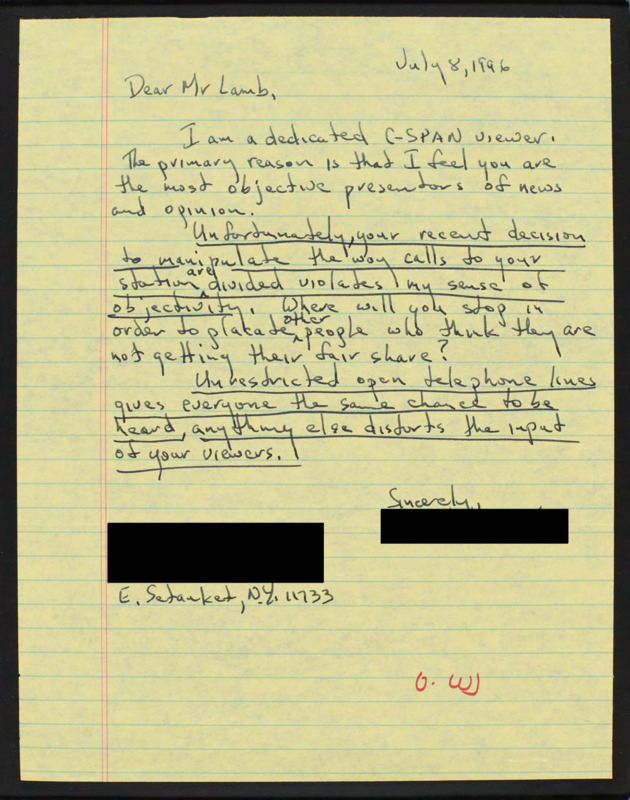 July 8, 1996
Dear Mr Lamb,
I am a dedicated C-SPAN viewer.
The primary reason is that I feel you are
the most objective presentors of news
and opinion.
Unfortunately, your recent decision
to manipulate the way calls to your
station are divided violates my sense of
objectivity. Where will you stop in
order to placate other people who think they are
not getting their fair share?
Unrestricted open telephone lines
gives everyone the same chance to be
heard, anything else distorts the input
of your viewers.
Sincerely,
E. Setauket, N.Y. 11733